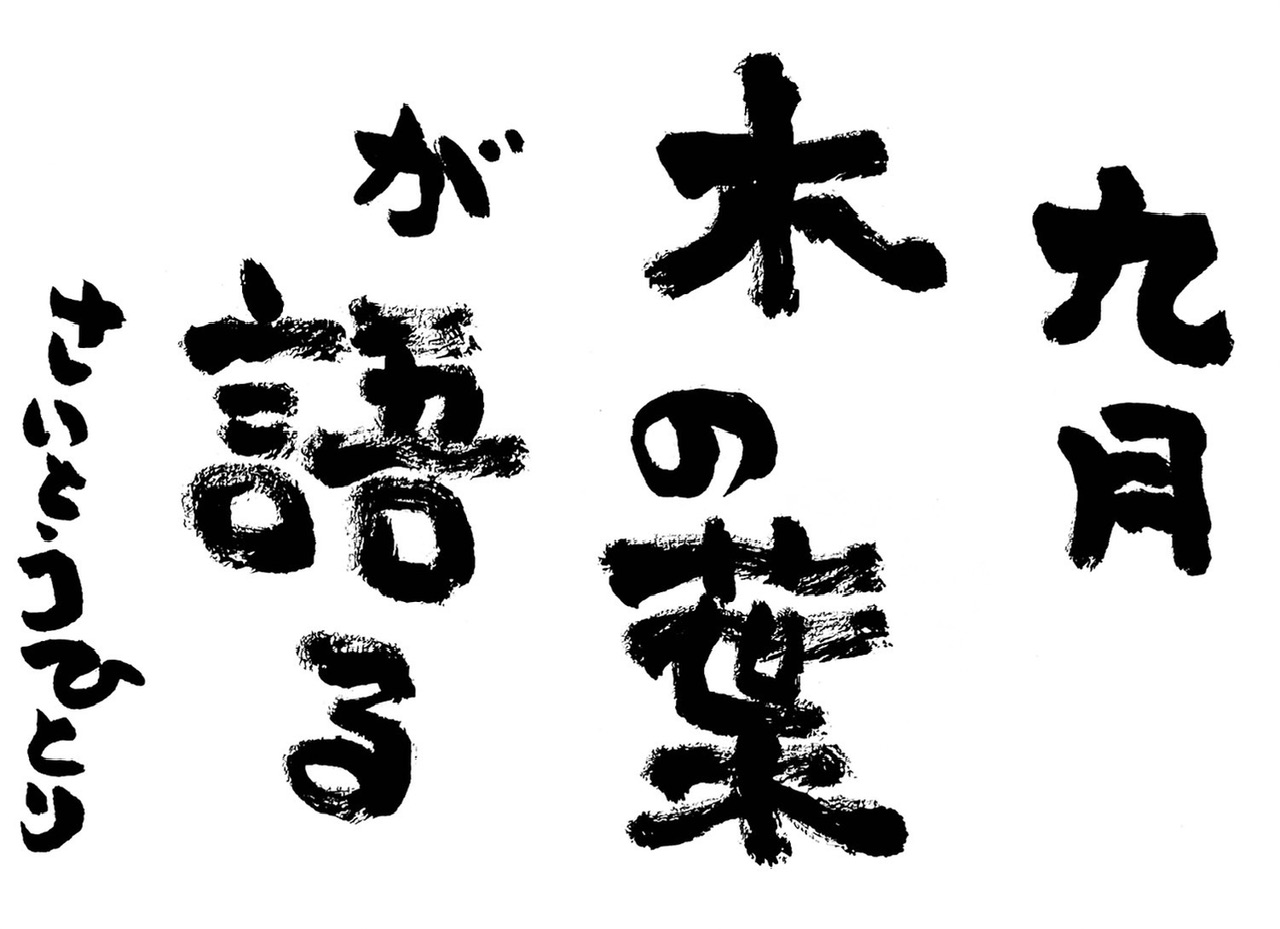 九月
木の葉
が語る
さいとうひとり